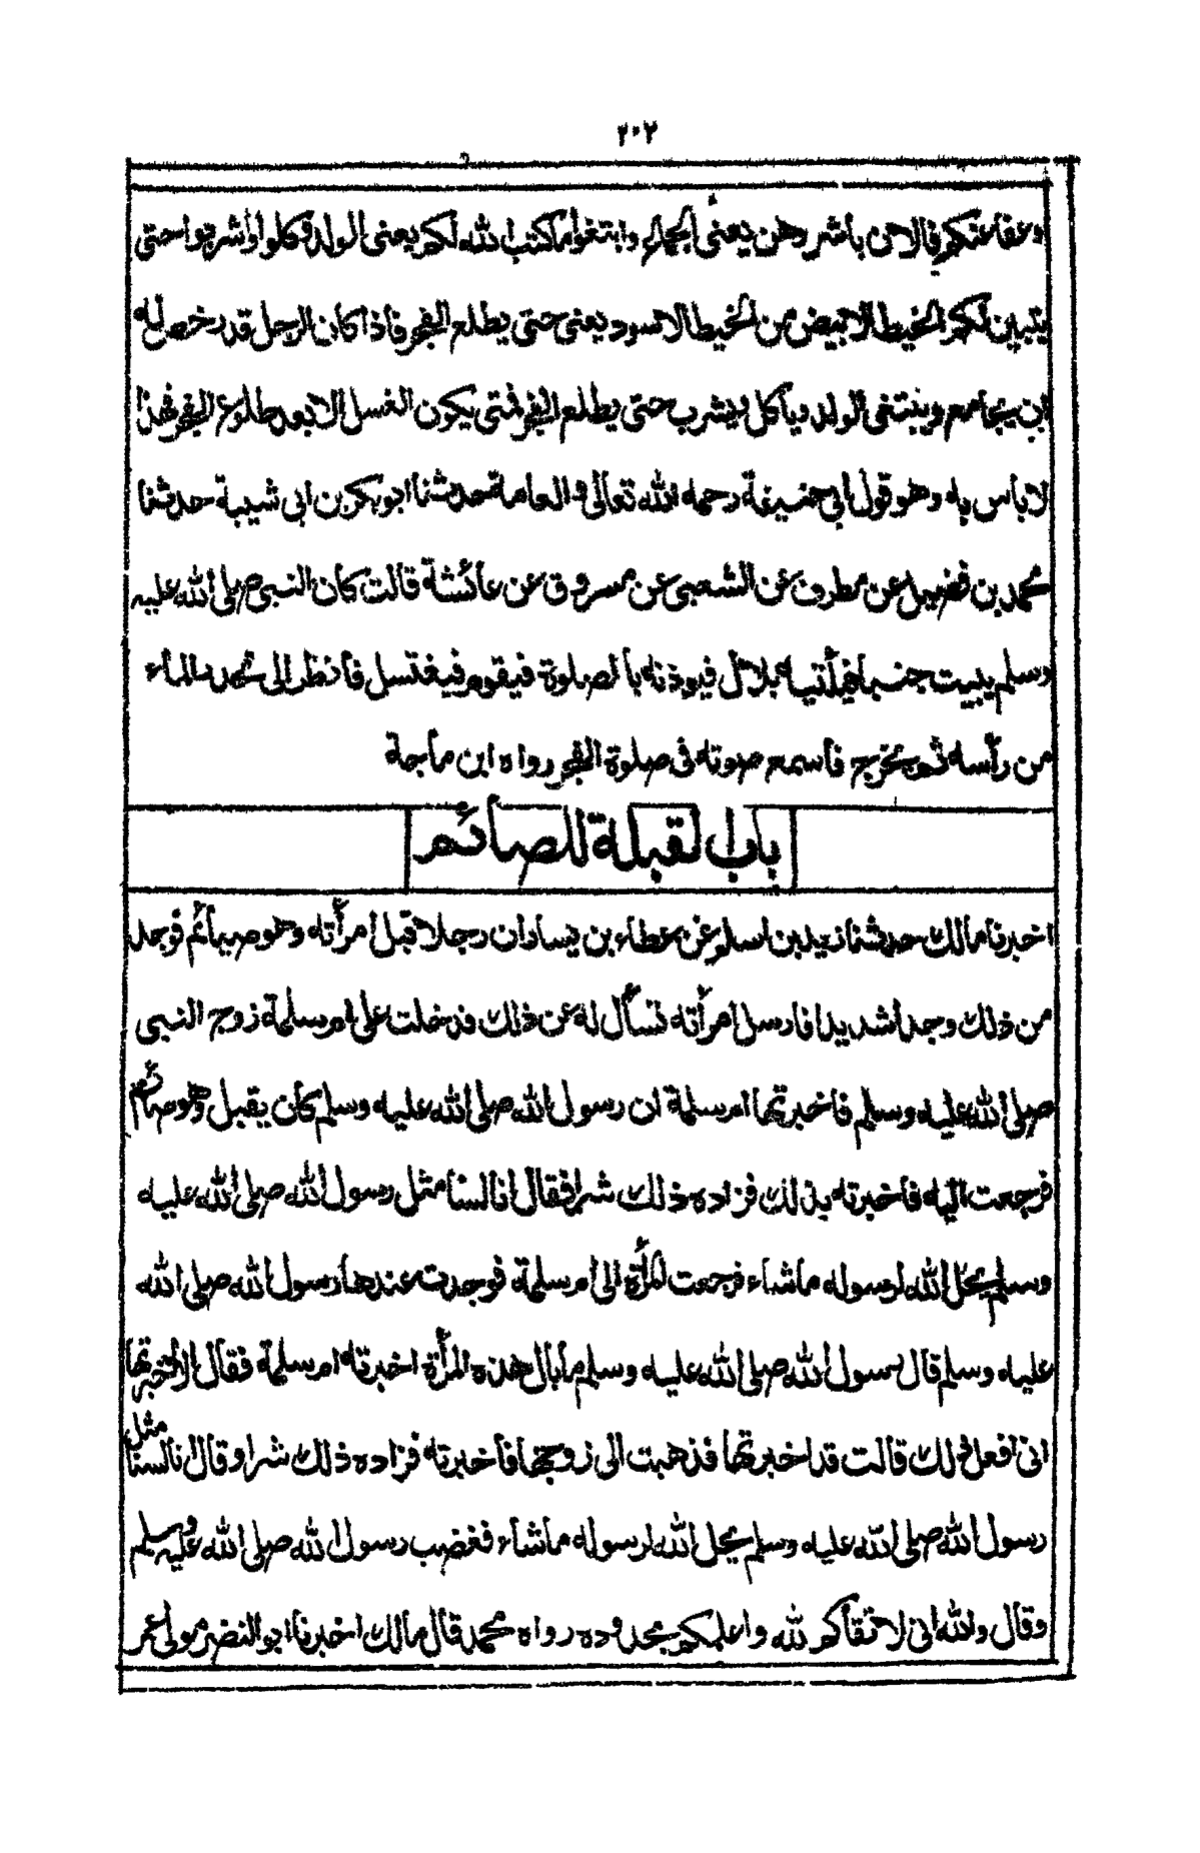 ٢٠٢
وعفا عنكم فالان باشروهن يعني الجماع وابتغوا ما كتب الله لكم يعني الولد وكلوا واشربوا حتى
يتبين لكم الخيط الابيض من الخيط الاسود يعني حتى يطلع الفجر فاذا كان الرجل قد رخص له
ان يجامع ويبتغى الولد وياكل ويشرب حتى يطلع الفجر فمتى يكون الغسل الا بعد طلوع الفجر فهذا
لا باس به وهو قول ابي حنيفة رحمه الله تعالى والعامة حدثنا ابو بكر بن ابى شيبة حدثنا
محمد بن فضيل عن مطرف عن الشعبى عن مسروق عن عائشة قالت كان النبى صلى الله عليه
وسلم يبيت جنبا فيأتيه بلال فيوذنه بالصلوة فيقوم فيغتسل فأنظر الى تحدر الماء
من رأسه ثم يخرج فأسمع صوته فى صلوة الفجر رواه ابن ماجة
باب القبلة للصائم
اخبرنا مالك حدثنا زيد بن اسلم عن عطاء بن يسار ان رجلا قبل امرأته وهو صائم فوجد
من ذلك وجدا شديدا فارسل امرأته تسأل له عن ذلك فدخلت على ام سلمة زوج النبى
صلى الله عليه وسلم فاخبرتها ام سلمة ان رسول الله صلى الله عليه وسلم كان يقبل وهو صائم
فرجعت اليه فاخبرته بذلك فزاده ذلك شرا فقال انا لسنا مثل رسول الله صلى الله عليه
وسلم يحل الله لرسوله ما شاء فرجعت المرأة الى ام سلمة فوجدت عندها رسول الله صلى الله
عليه وسلم قال رسول الله صلى الله عليه وسلم ما بال هذه المرأة اخبرته ام سلمة فقال الا اخبرتها
انى افعل ذلك قالت قد اخبرتها فذهبت الى زوجها فأخبرته فزاده ذلك شرا وقال انا لسنا مثل
رسول الله صلى الله عليه وسلم يحل الله لرسوله ما شاء فغضب رسول الله صلى الله عليه وسلم
وقال والله انى لاتقاكم لله واعلمكم بحدوده رواه محمد قال مالك اخبرنا ابو النضر مولى عمر